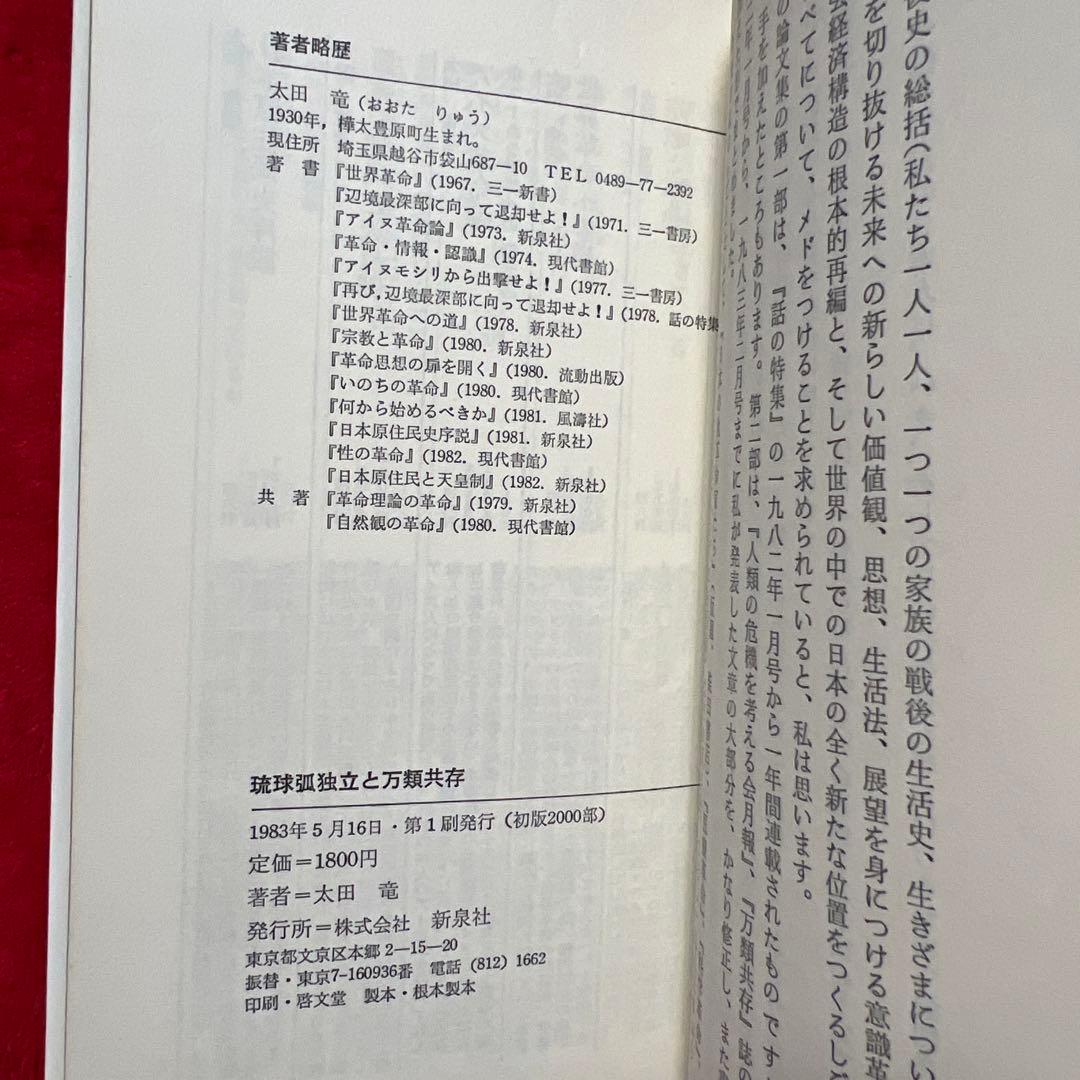 後史の総括(私たち一人一人、一つ一つの家族の戦後の生活史、生きざまについ
を切り抜ける未来への新らしい価値観、思想、生活法、展望を身につける意識革
会経済構造の根本的再編と、そして世界の中での日本の全く新たな位置をつくるしご
べてについて、メドをつけることを求められていると、私は思います。
の論文集の第一部は、『話の特集』の一九八二年一月号から一年間連載されたものです
手を加えたところもあります。第二部は、『人類の危機を考える会月報』、『万類共存』誌の
年一月号から、一九八三年二月号までに私が発表した文章の大部分を、かなり修正し、また
著者略歴
太田 竜(おおた りゅう)
1930年,樺太豊原町生まれ。
現住所 埼玉県越谷市袋山687―10 TEL 0489―77―2392
著書 『世界革命』(1967.三一新書)
『辺境最深部に向って退却せよ!』(1971.三一書房)
『アイヌ革命論』(1973.新泉社)
『革命・情報・認識』(1974.現代書館)
『アイヌモシリから出撃せよ!』(1977.三一書房)
『再び,辺境最深部に向って退却せよ!』(1978.話の特集
『世界革命への道』(1978.新泉社)
『宗教と革命』(1980.新泉社)
『革命思想の扉を開く』(1980.流動出版)
『いのちの革命』(1980.現代書館)
『何から始めるべきか』(1981.風濤社)
『日本原住民史序説』(1981.新泉社)
『性の革命』(1982.現代書館)
『日本原住民と天皇制』(1982.新泉社)
共著 『革命理論の革命』(1979.新泉社)
『自然観の革命』(1980.現代書館)
琉球弧独立と万類共存
1983年5月16日・第1刷発行(初版2000部)
定価=1800円
著者=太田 竜
発行所=株式会社 新泉社
東京都文京区本郷2―15―20
振替・東京7-160936番 電話(812)1662
印刷・啓文堂 製本・根本製本